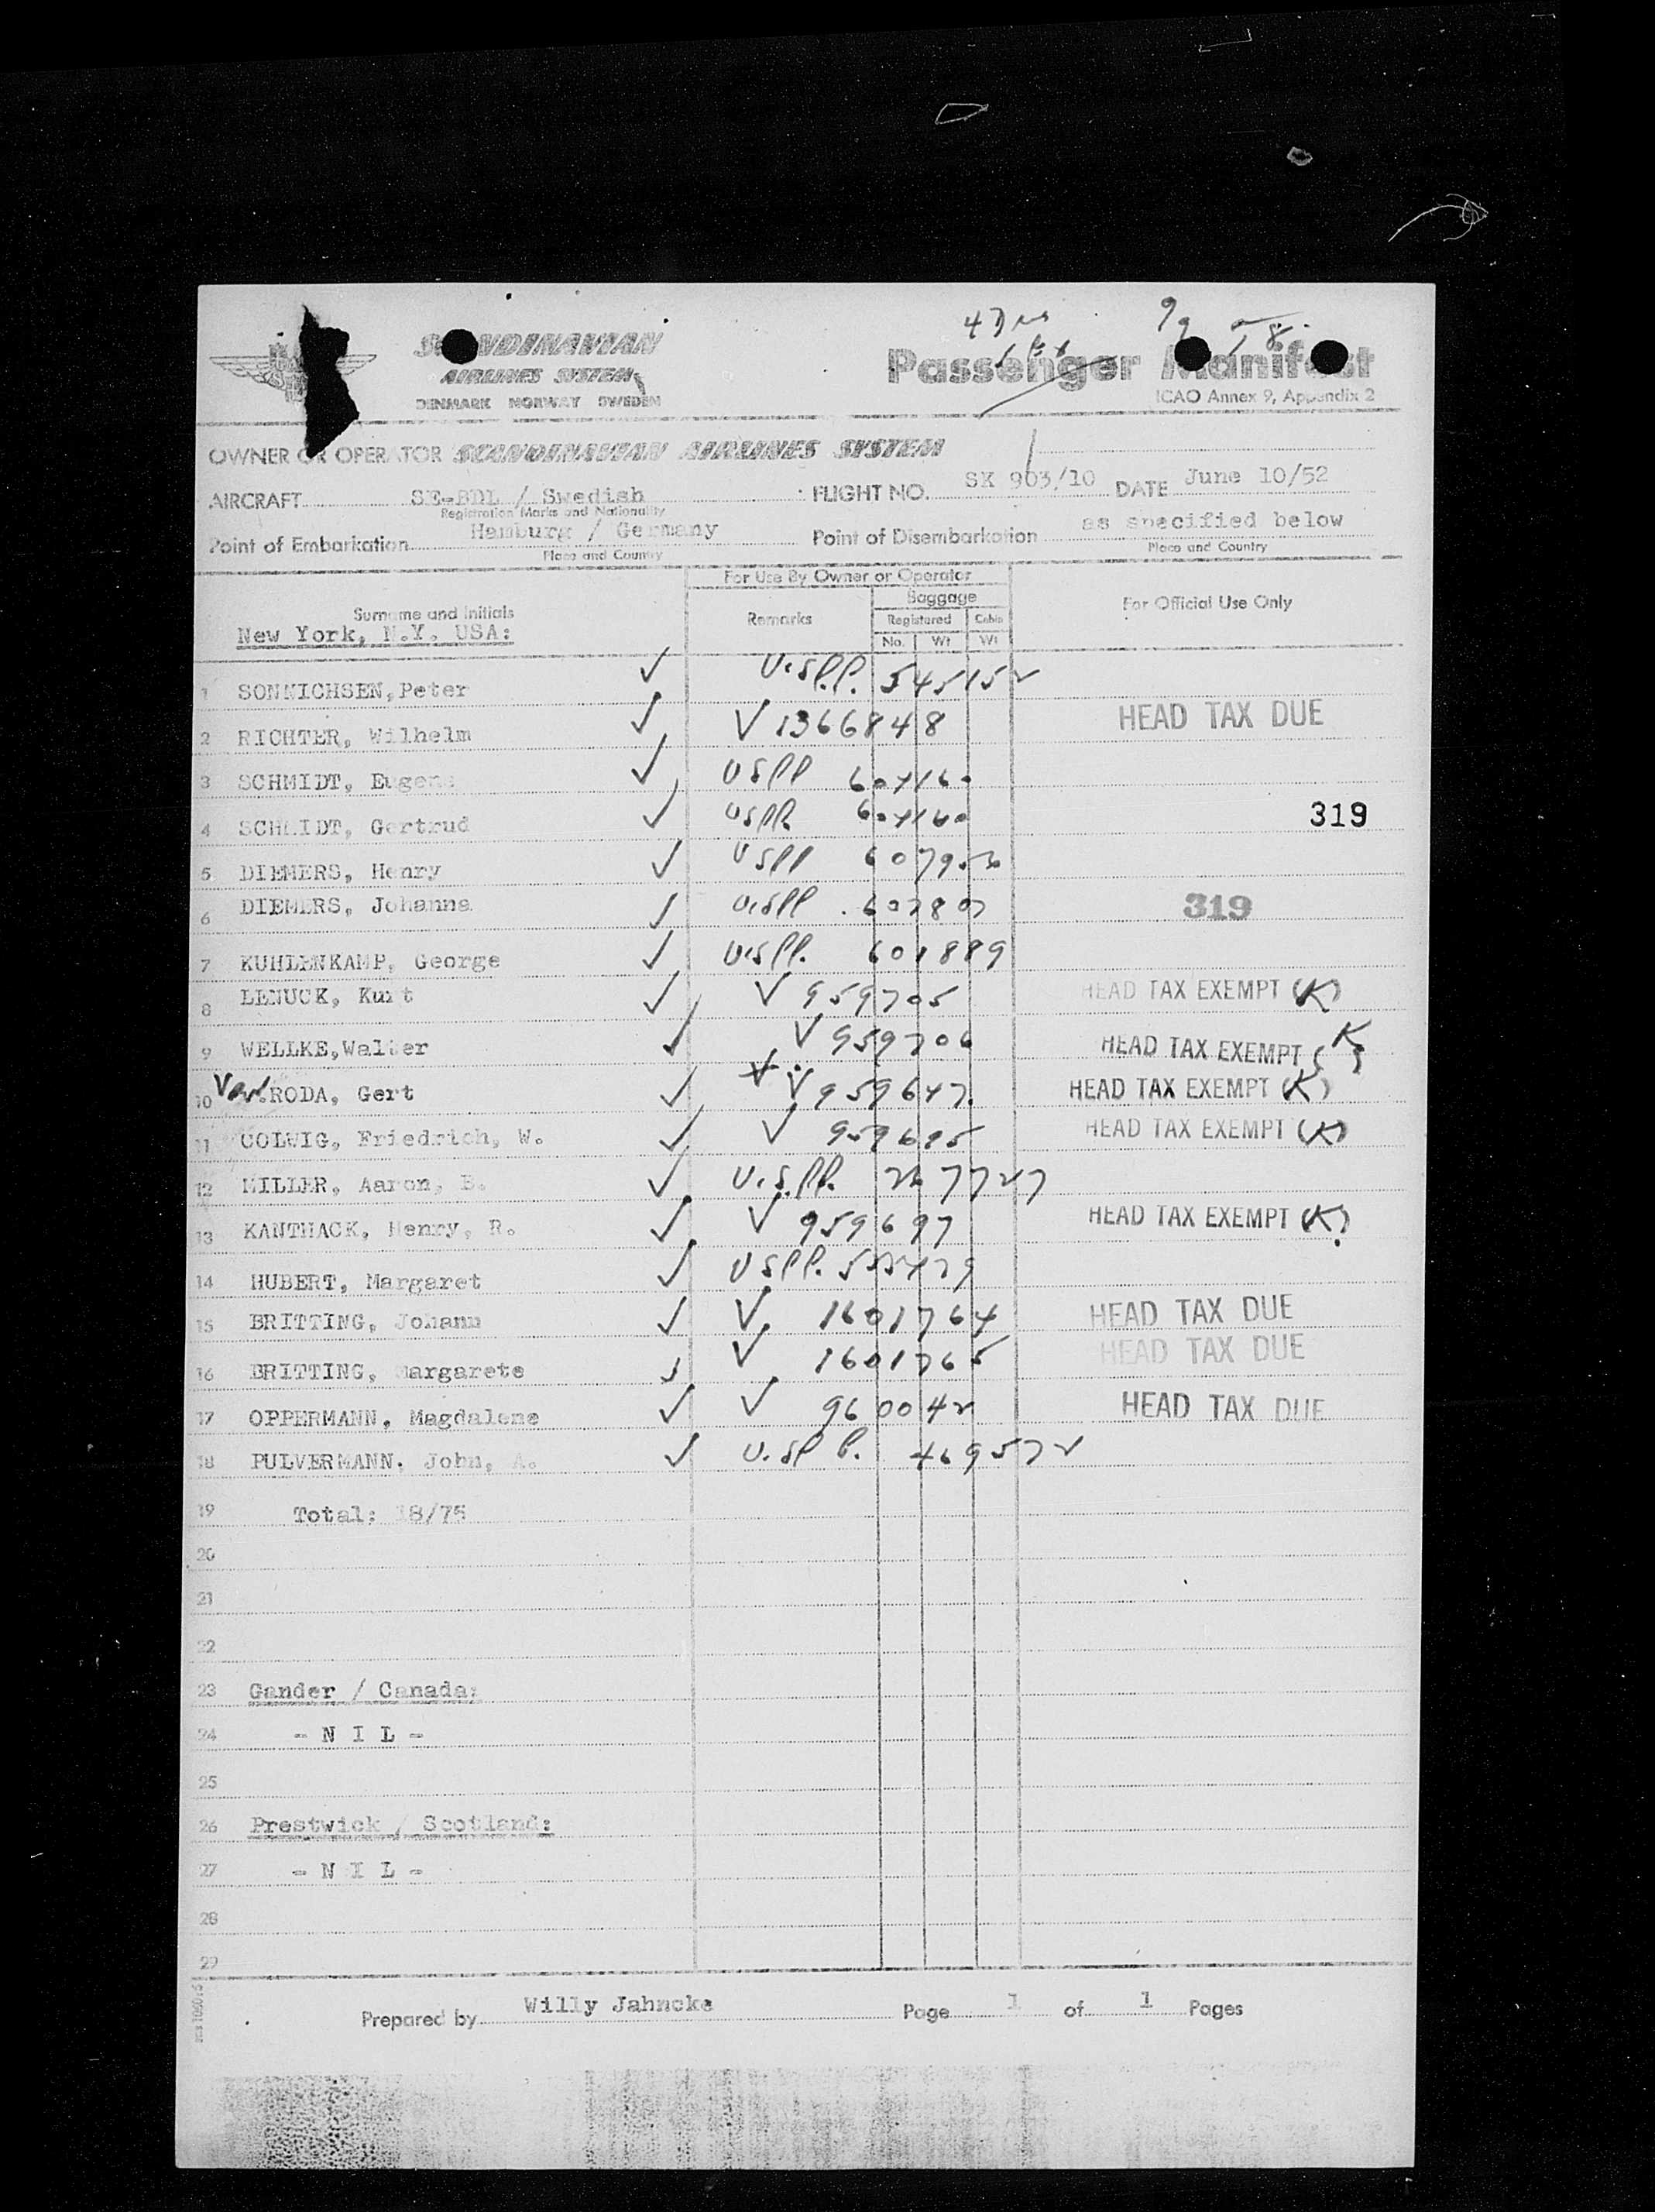 SCANDINAVIAN
AIRLINES SYSTEM
DENMARK NORWAY SWEDEN
Passenger Manifest
ICAO Annex 9, Appendix 2
OWNER OR OPERATOR SCANDINAVIAN AIRLINES SYSTEM
AIRCRAFT SE-BDL / Swedish FLIGHT NO. SK 903/10 DATE June 10/52
Registration Marks and Nationality
Point of Embarkation Hamburg / Germany Point of Disembarkation as specified below
Place and Country Place and Country
For Use By Owner or Operator
Surname and Initials Remarks Baggage For Official Use Only
Registered Cabin
No. Wt Wt
New York, N.Y. USA:
1 SONNICHSEN, Peter ✓ U.S.P.P. 545152
2 RICHTER, Wilhelm ✓ V 1366848 HEAD TAX DUE
3 SCHMIDT, Eugene ✓ USPP 604160
4 SCHMIDT, Gertrud ✓ USPP. 604160 319
5 DIEMERS, Henry ✓ USPP
6 DIEMERS, Johanna ✓ U.SPP. 607807 319
7 KUHLENKAMP, George ✓ U.S.PP. 601889
8 LENUCK, Kurt ✓ V 959705 HEAD TAX EXEMPT (K)
9 WELLKE, Walter ✓ V 959706 HEAD TAX EXEMPT (K)
10 Von RODA, Gert ✓ V 959647 HEAD TAX EXEMPT (K)
11 COLWIG, Friedrich, W. ✓ V 959695 HEAD TAX EXEMPT (K)
12 MILLER, Aaron, B. ✓ U.S.PP.
13 KANTHACK, Henry, R. ✓ V 959697 HEAD TAX EXEMPT (K)
14 HUBERT, Margaret ✓ USPP. 555479
15 BRITTING, Johann ✓ V 1601764 HEAD TAX DUE
16 BRITTING, Margarete ✓ V 1601765 HEAD TAX DUE
17 OPPERMANN, Magdalene ✓ V 960042 HEAD TAX DUE
18 PULVERMANN. John, A. ✓ U.SP P. 469572
19 Total: 18/75
20
21
22
23 Gander / Canada:
24 - N I L -
25
26 Prestwick / Scotland:
27 - N I L -
28
29
Prepared by Willy Jahncke Page 1 of 1 Pages